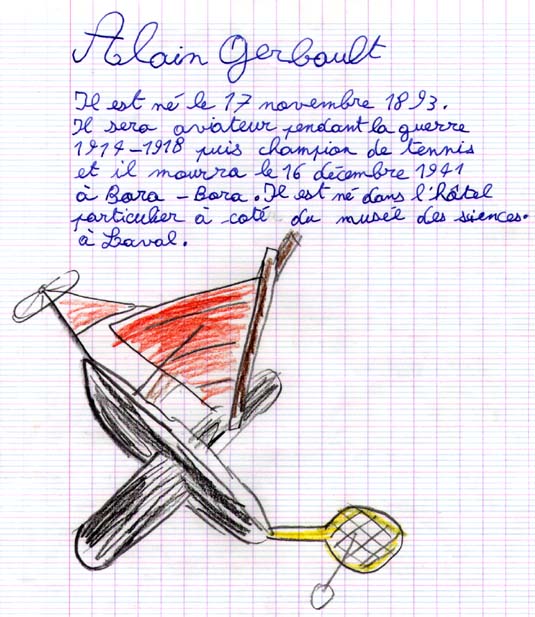 Alain Gerbault
Il est né le 17 novembre 1893.
Il sera aviateur pendant la guerre
1914-1918 puis champion de tennis
et il mourra le 16 décembre 1941
à Bora - Bora. Il est né dans l'hôtel
particulier à coté du musée des sciences.
à Laval.